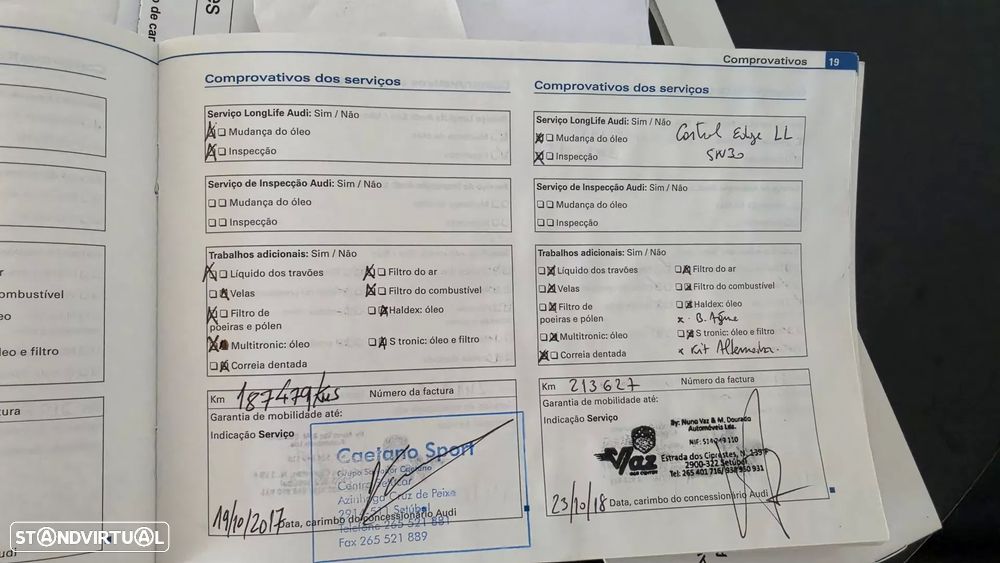 ES
o de car
Comprovativos
19
ombustível
eo
leo e filtro
tura
udi
Comprovativos dos serviços
Serviço LongLife Audi: Sim / Não
Mudança do óleo
Inspecção
Serviço de Inspecção Audi: Sim / Não
Mudança do óleo
Inspecção
Trabalhos adicionais: Sim / Não
Líquido dos travões
Filtro do ar
Velas
Filtro do combustível
Filtro de
poeiras e pólen
Haldex: óleo
Multitronic: óleo
S tronic: óleo e filtro
Correia dentada
Km 187479 Kms
Número da factura
Garantia de mobilidade até:
Indicação Serviço
Caetano Sport
Grupo Salvador Caetano
Azinhaga Cruz de Peixe
2914-511 Setúbal
Telefone 265 521 881
Fax 265 521 889
19/10/2017
Data, carimbo do concessionário Audi
Comprovativos dos serviços
Serviço LongLife Audi: Sim / Não
Mudança do óleo
Castrol Edge LL
Inspecção
5W30
Serviço de Inspecção Audi: Sim / Não
Mudança do óleo
Inspecção
Trabalhos adicionais: Sim / Não
Líquido dos travões
Filtro do ar
Velas
Filtro do combustível
Filtro de
poeiras e pólen
Haldex: óleo
x . B. Água
Multitronic: óleo
S tronic: óleo e filtro
Correia dentada
x Kit Alternador.
Km 213627
Número da factura
Garantia de mobilidade até:
Indicação Serviço
By: Nuno Vaz & M. Dourado
Automóveis Lda.
Vaz
Estrada dos Ciprestes, N. 139 F
2900-322 Setúbal
23/10/18
Data, carimbo do concessionário Audi
STANDVIRTUAL